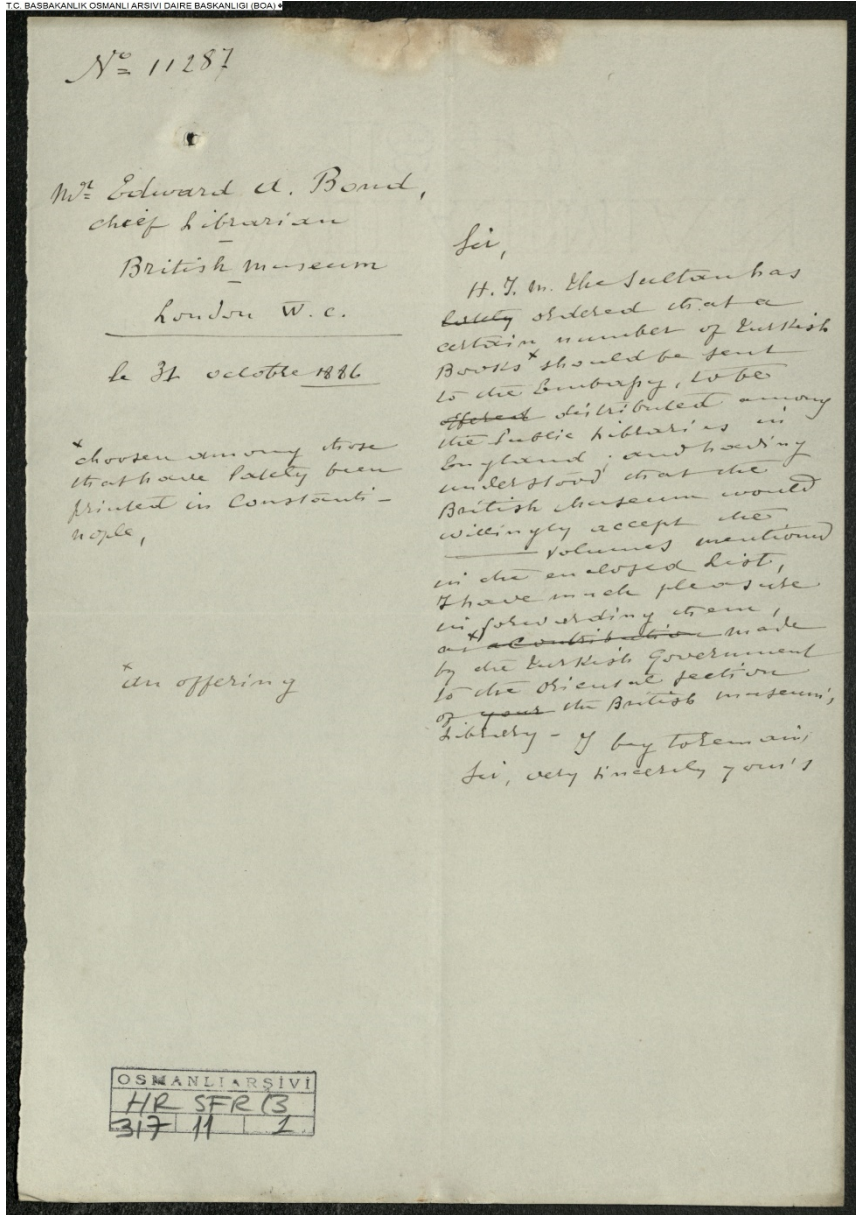 T.C. BASBAKANLIK OSMANLI ARSIVI DAIRE BASKANLIGI (BOA)
No 11287
Mr Edward A. Bond,
chief Librarian
British Museum
London W.C.
le 31 octobre 1886
x choosen among those
that have lately been
printed in Constanti-
nople,
x an offering
Sir,
H. I. M. the Sultan has
lately ordered that a
certain number of Turkish
Books x should be sent
to the Embassy, to be
offered distributed among
the Public Libraries in
England; and having
understood that the
British Museum would
willingly accept the
volumes mentioned
in the enclosed List,
I have much pleasure
in forwarding them,
as x a contribution made
by the Turkish Government
to the oriental section
of your the British museum's
Library - I beg to remain,
Sir, very sincerely your's
OSMANLI ARŞİVİ
HR SFR (3
317 11 1